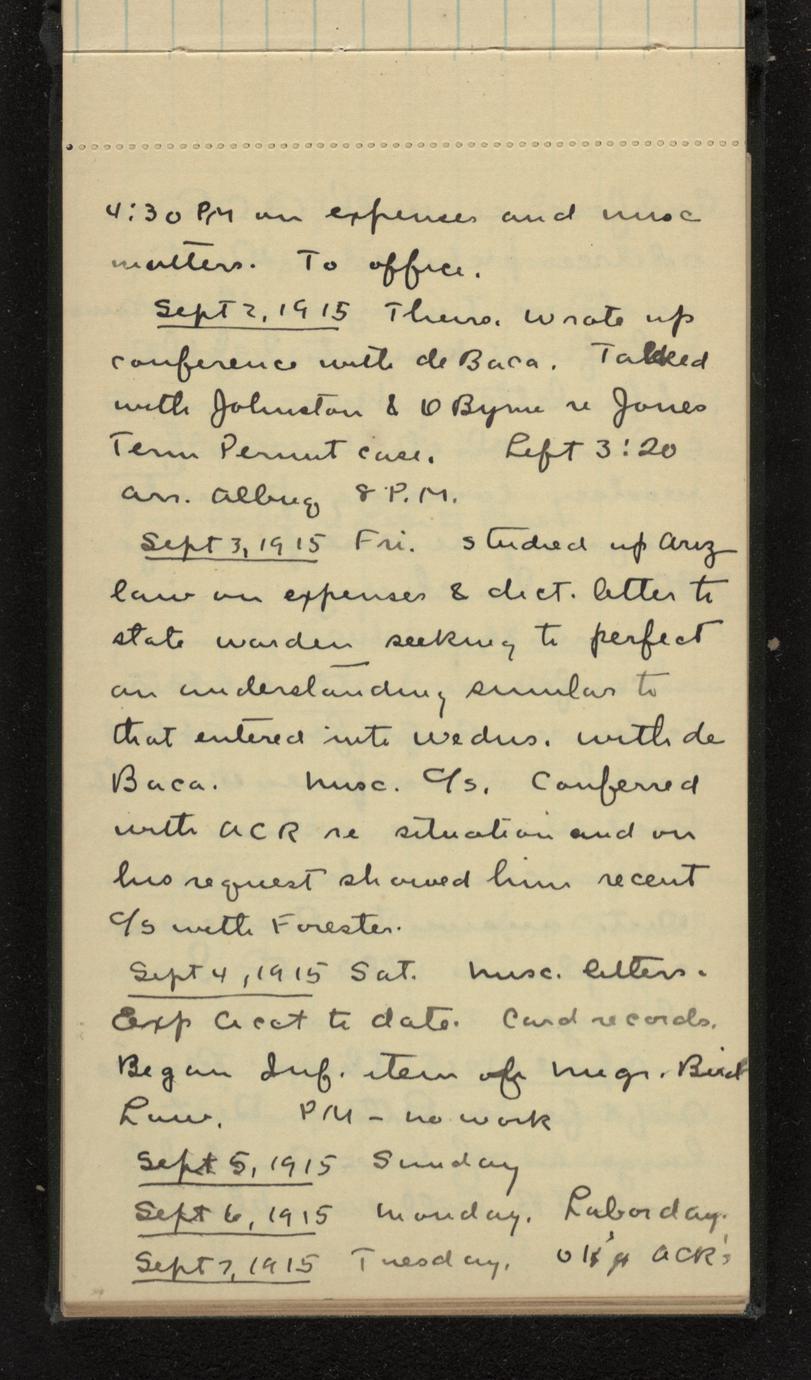 4:30 PM on expenses and misc
matters. To office.
Sept 2, 1915 Thurs. Wrote up
conference with de Baca. Talked
with Johnston & O Byrne re Jones
Term Permit case. Left 3:20
arr. Albuq 8 P.M.
Sept 3, 1915 Fri. Studied up Ariz
law on expenses & dict. letter to
state warden seeking to perfect
an understanding similar to
that entered into Wednes. with de
Baca. Misc. C/s. Conferred
with ACR re situation and on
his request showed him recent
C/s with Forester.
Sept 4, 1915 Sat. Misc. letters.
Exp Acct to date. Card records.
Began Inf. item on Migr. Bird
Law. PM - no work
Sept 5, 1915 Sunday
Sept 6, 1915 Monday. Labor day.
Sept 7, 1915 Tuesday. OK'd ACR's